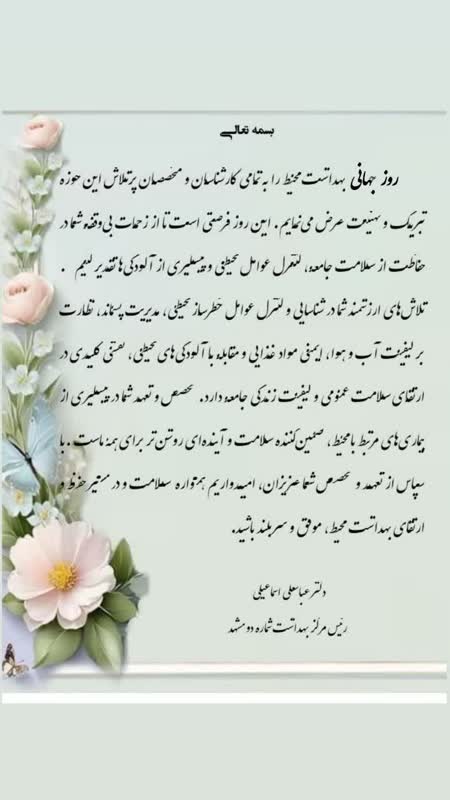 بسمه تعالی
روز جهانی بهداشت محیط را به تمامی کارشناسان و متخصصان پرتلاش این حوزه
تبریک و تهنیت عرض می‌نمایم. این روز فرصتی است تا از زحمات بی‌وقفه شما در
حفاظت از سلامت جامعه، کنترل عوامل محیطی و پیشگیری از آلودگی‌ها تقدیر کنیم.
تلاش‌های ارزشمند شما در شناسایی و کنترل عوامل خطرساز محیطی، مدیریت پسماند، نظارت
بر کیفیت آب و هوا، ایمنی مواد غذایی و مقابله با آلودگی‌های محیطی، نقشی کلیدی در
ارتقای سلامت عمومی و کیفیت زندگی جامعه دارد. تخصص و تعهد شما در پیشگیری از
بیماری‌های مرتبط با محیط، تضمین‌کننده سلامت و آینده‌ای روشن‌تر برای همه ماست. با
سپاس از تعهد و تخصص شما عزیزان، امیدواریم همواره سلامت و در مسیر حفظ و
ارتقای بهداشت محیط، موفق و سربلند باشید.
دکتر عباسعلی اسماعیلی
رئیس مرکز بهداشت شماره دو مشهد